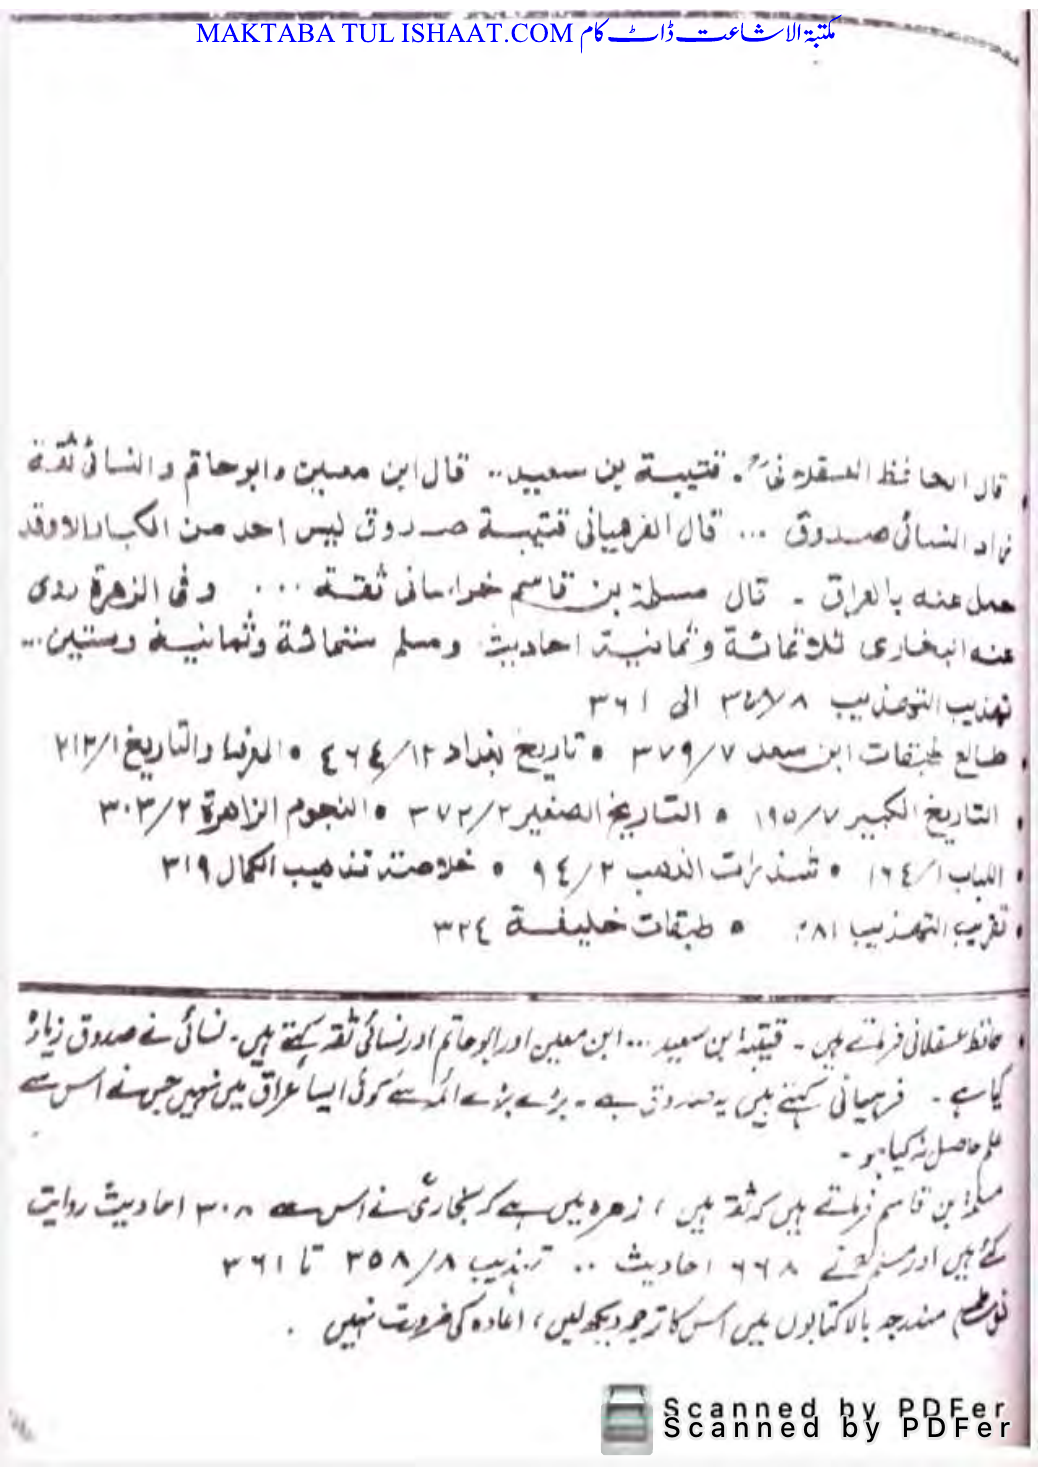 MAKTABA TUL ISHAAT.COM مکتبۃ الاشاعت ڈاٹ کام
قال الحافظ العسقلانیؒ۔ قتیبة بن سعید.. قال ابن معین وابوحاتم والنسائی ثقة
زاد النسائی صدوق ... قال الفرهیانی قتیبة صدوق لیس احد من الکبار الا وقد
حمل عنه بالعراق ۔ قال مسلمة بن قاسم خراسانی ثقة ... و فی الزهرة روی
عنه البخاری ثلاثمائة وثمانیة احادیث ومسلم ستمائة وثمانیة وستین...
تهذیب التهذیب ٣٥٨/٨ الی ٣٦١
طالع طبقات ابن سعد ٣٧٩/٧ • تاریخ بغداد ٤٦٤/١٢ • والتاریخ ٢١٢/١
• التاریخ الکبیر ١٩٥/٧ • التاریخ الصغیر ٣٧٢/٢ • النجوم الزاهرة ٣٠٣/٢
• اللباب ١٦٤/١ • شذرات الذهب ٩٤/٢ • خلاصة تذهیب الکمال ٣١٩
• تقریب التهذیب ٢٨١ • طبقات خلیفة ٣٢٤
• حافظ عسقلانی فرماتے ہیں ۔ قتیبۃ ابن سعید ... ابن معین اور ابوحاتم اور نسائی ثقہ کہتے ہیں۔ نسائی نے صدوق زیادہ
کیا ہے ۔ فرہیانی کہتے ہیں یہ صدوق ہے ۔ بڑے بڑے ائمہ سے کوئی ایسا عراق میں نہیں جس نے اس سے
علم حاصل نہ کیا ہو ۔
مسلمۃ بن قاسم فرماتے ہیں کہ ثقہ ہیں ، زھرہ میں ہے کہ بخاریؒ نے اس سے ٣٠٨ احادیث روایت
کئے ہیں اور مسلم نے ٦٦٨ احادیث .. تہذیب ٣٥٨/٨ تا ٣٦١
نوٹ مندرجہ بالا کتابوں میں اس کا ترجمہ دیکھ لیں ، اعادہ کی ضرورت نہیں .
Scanned by PDFer
Scanned by PDFer